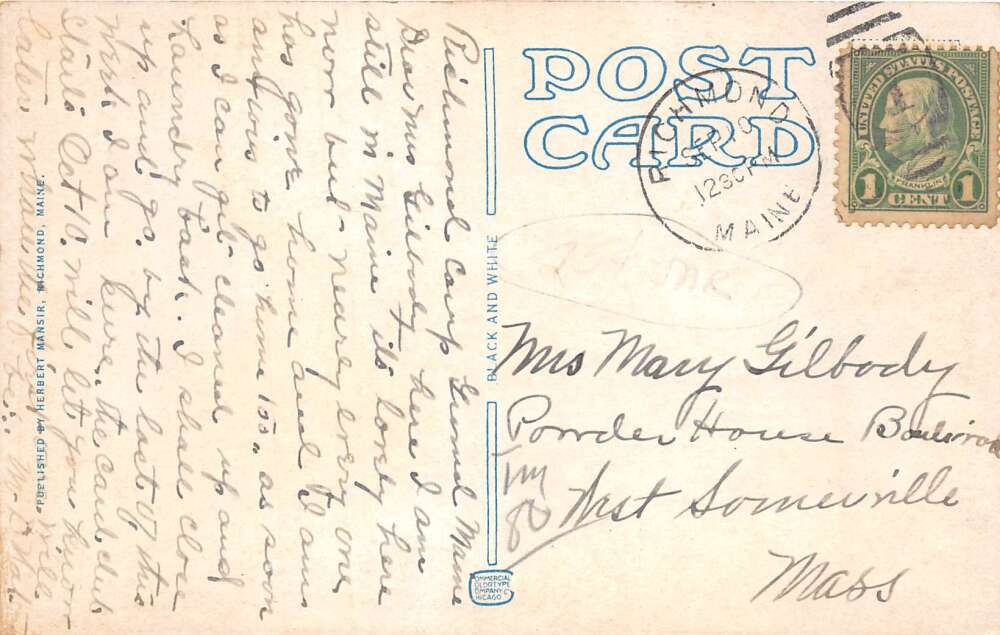 Richmond Camp Ground Maine
Dear Mrs Gilbody here I am
still in Maine its lovely here
now but nearly every one
has gone home and I am
anxious to go home too. as soon
as I can get cleaned up and
Laundry back. I shall close
up and go. by the last of this
Week I am sure. the card club
starts Oct 10. will let you know
later
PUBLISHED BY HERBERT MANSIR, RICHMOND, MAINE.
BLACK AND WHITE
COMMERCIAL
COLORTYPE
COMPANY
CHICAGO
POST
CARD
RICHMOND
SEP
1230 PM
MAINE
UNITED STATES POSTAGE
FRANKLIN
1 CENT 1
Mrs Mary Gilbody
Powder House Boulevard
West Somerville
Mass